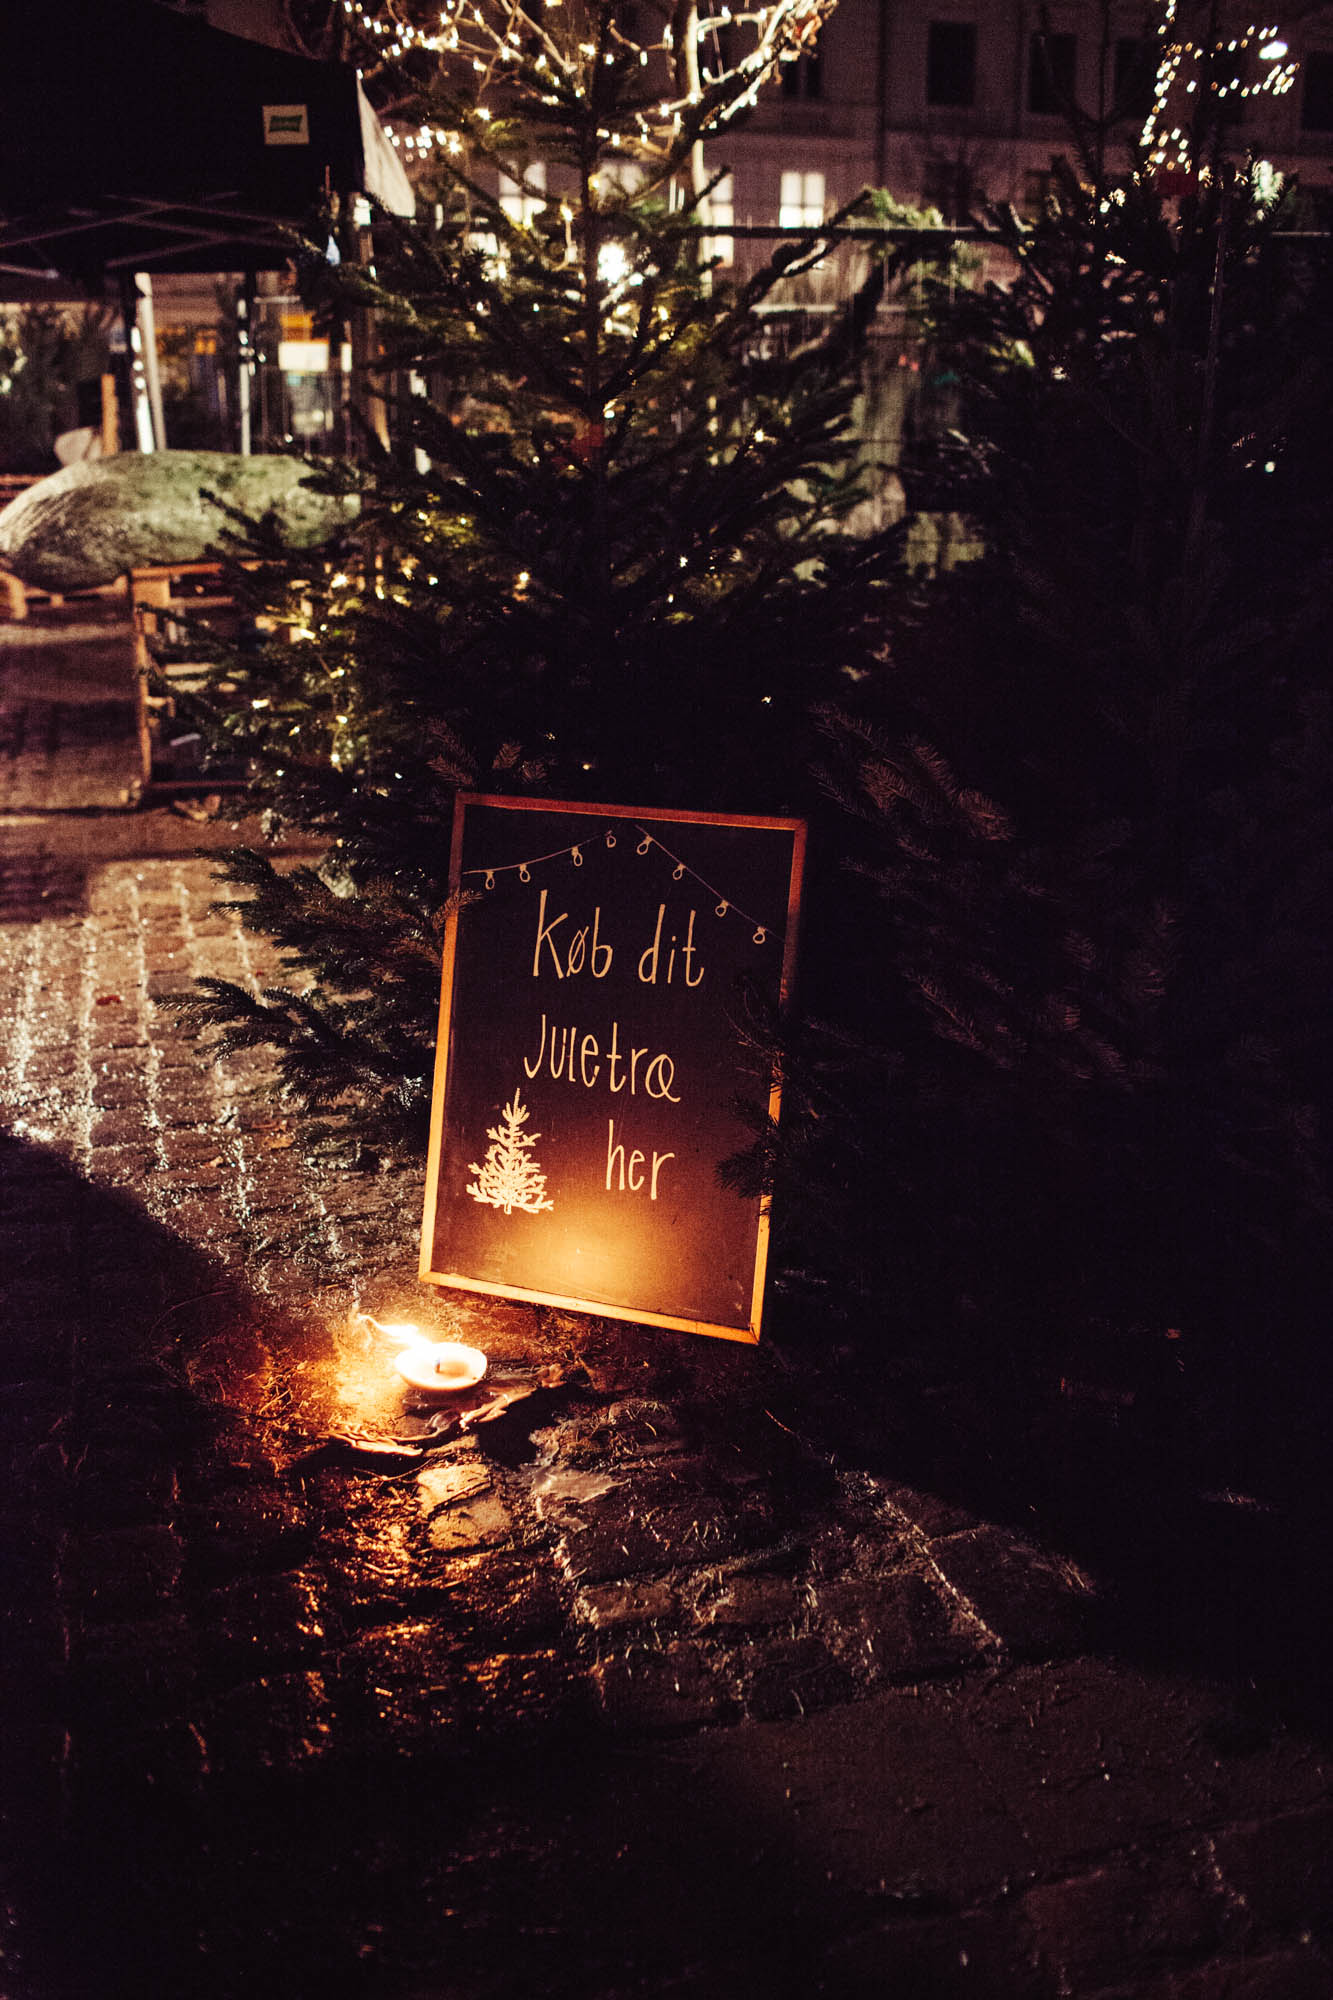 Køb dit
Juletræ
her